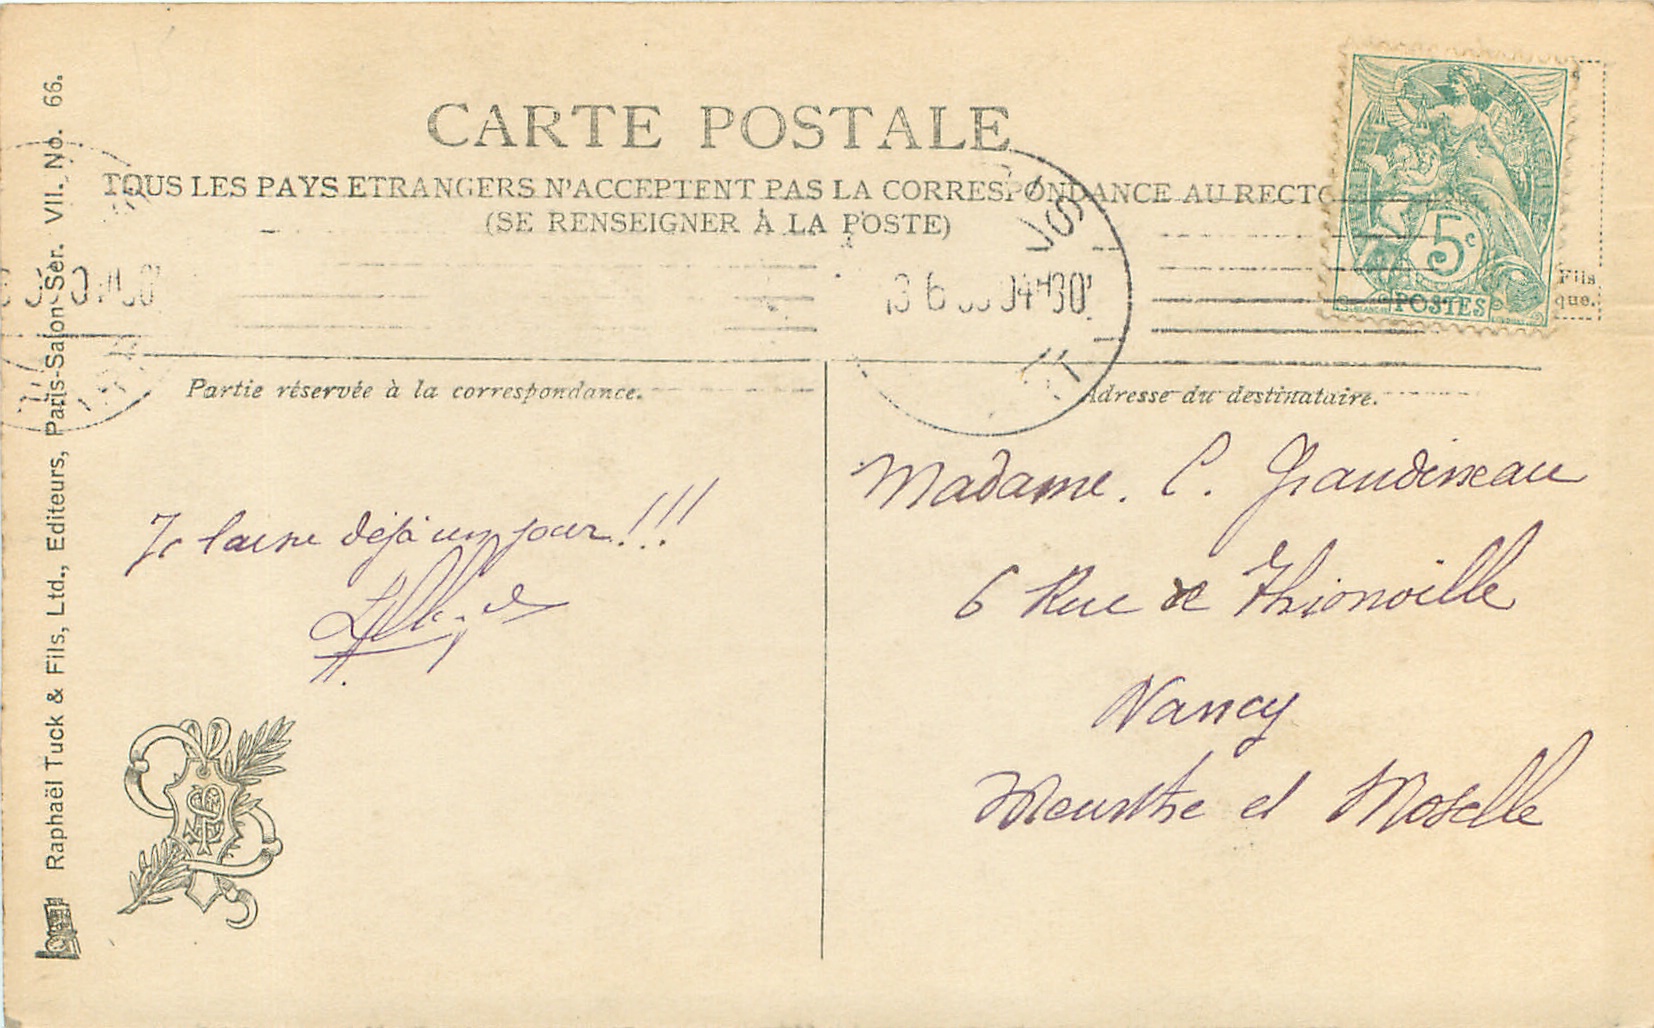 CARTE POSTALE
TOUS LES PAYS ETRANGERS N'ACCEPTENT PAS LA CORRESPONDANCE AU RECTO
(SE RENSEIGNER À LA POSTE)
5c
POSTES
Fils
que.
Partie réservée à la correspondance.
déjà un jour!!!
Adresse du destinataire.
Madame. C.
6 Rue de Thionville
Nancy
Meurthe et Moselle
Raphaël Tuck & Fils, Ltd., Editeurs, Paris-Salon Ser. VII. No. 66.